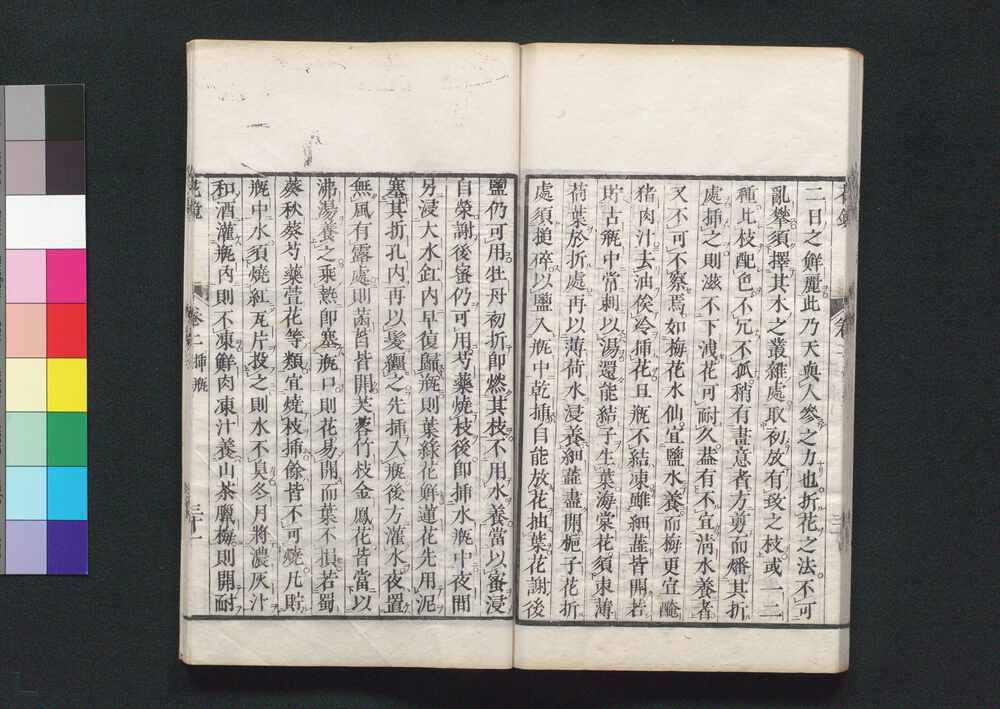 二日之鮮麗此乃天與人參之力也折花之法不可
亂攀須擇其木之叢雜處取初放有致之枝或一二
種比枝配色不冗不孤稍有畫意者方剪而燔其折
處揷之則滋不下洩花可耐久葢有不宜淸水養者
又不可不察焉如梅花水仙宜鹽水養而梅更宜醃
猪肉汁去油俟冷揷花且瓶不結凍雖細蘂皆開若
貯古瓶中常刺以湯還能結子生葉海棠花須束薄
荷葉於折處再以薄荷水浸養細蘂盡開梔子花折
處須搥碎以鹽入瓶中乾揷自能放花抽葉花謝後
鹽仍可用牡丹初折卽燃其枝不用水養當以蜜浸
自榮謝後蜜仍可用芍藥燒枝後卽揷水瓶中夜間
另浸大水缸內早復歸瓶則葉綠花鮮蓮花先用泥
塞其折孔內再以髮纏之先揷入瓶後方灌水夜置
無風有露處則菡皆皆開芙蓉竹枝金鳳花皆當以
沸湯養之乘熱卽塞瓶口則花易開而葉不損若蜀
葵秋葵芍藥萱花等類宜燒枝揷餘皆不可燒凡貯
瓶中水須燒紅瓦片投之則水不臭冬月將濃灰汁
和酒灌瓶內則不凍鮮肉凍汁養山茶臘梅則開耐
花鏡 卷二揷瓶 三十一